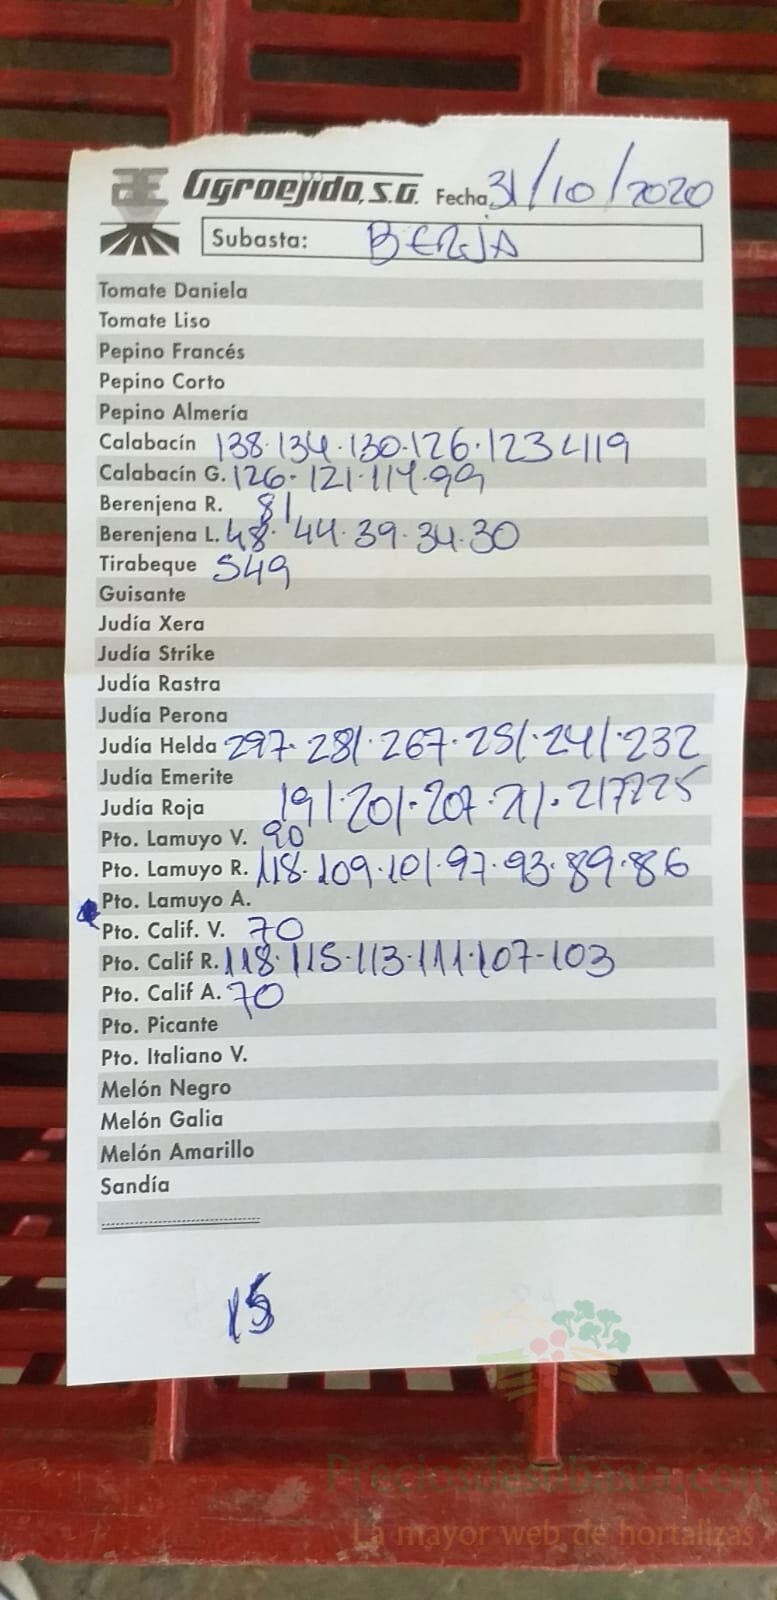 Agroejido, S.A. Fecha 31/10/2020
Subasta: BERJA
Tomate Daniela
Tomate Liso
Pepino Francés
Pepino Corto
Pepino Almería
Calabacín 138·134·130·126·123119
Calabacín G. 126·121·114·99
Berenjena R. 81
Berenjena L. 48·44·39·34·30
Tirabeque 549
Guisante
Judía Xera
Judía Strike
Judía Rastra
Judía Perona
Judía Helda 297·281·267·251·241·232
Judía Emerite
Judía Roja 191·201·207·211·217225
Pto. Lamuyo V. 90
Pto. Lamuyo R. 118·109·101·97·93·89·86
Pto. Lamuyo A.
Pto. Calif. V. 70
Pto. Calif R. 118·115·113·111·107-103
Pto. Calif A. 70
Pto. Picante
Pto. Italiano V.
Melón Negro
Melón Galia
Melón Amarillo
Sandía
15
Preciosdesubasta.com
La mayor web de hortalizas